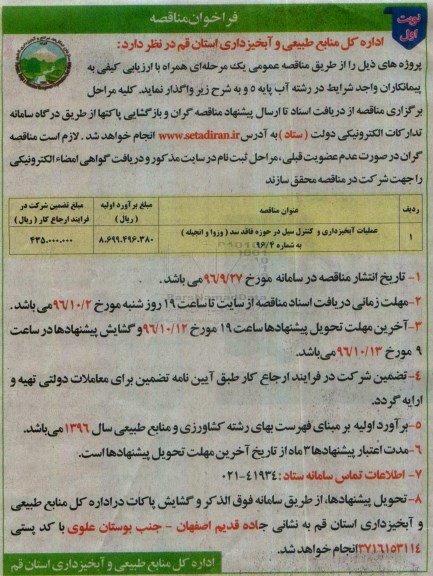 فراخوان مناقصه
نوبت اول
اداره کل منابع طبیعی و آبخیزداری استان قم در نظر دارد:
پروژه های ذیل را از طریق مناقصه عمومی یک مرحله‌ای همراه با ارزیابی کیفی به
پیمانکاران واجد شرایط در رشته آب پایه ۵ و به شرح زیر واگذار نماید. کلیه مراحل
برگزاری مناقصه از دریافت اسناد تا ارسال پیشنهاد مناقصه گران و بازگشایی پاکتها از طریق درگاه سامانه
تدارکات الکترونیکی دولت (ستاد) به آدرس www.setadiran.ir انجام خواهد شد. لازم است مناقصه
گران در صورت عدم عضویت قبلی، مراحل ثبت نام در سایت مذکور و دریافت گواهی امضاء الکترونیکی
را جهت شرکت در مناقصه محقق سازند
ردیف عنوان مناقصه مبلغ برآورد اولیه (ریال) مبلغ تضمین شرکت در فرایند ارجاع کار (ریال)
۱ عملیات آبخیزداری و کنترل سیل در حوزه فاقد سد (وزوا و انجیله) به شماره ۹۶/۴ ۸.۶۹۹.۴۹۶.۳۸۰ ۴۳۵.۰۰۰.۰۰۰
۱- تاریخ انتشار مناقصه در سامانه مورخ ۹۶/۹/۲۷ می باشد.
۲-مهلت زمانی دریافت اسناد مناقصه از سایت تا ساعت ۱۹ روز شنبه مورخ ۹۶/۱۰/۲ می باشد.
۳-آخرین مهلت تحویل پیشنهادها ساعت ۱۹ مورخ ۹۶/۱۰/۱۲ و گشایش پیشنهادها در ساعت
۹ مورخ ۹۶/۱۰/۱۳ می‌باشد.
۴-تضمین شرکت در فرایند ارجاع کار طبق آیین نامه تضمین برای معاملات دولتی تهیه و
ارایه گردد.
۵-برآورد اولیه بر مبنای فهرست بهای رشته کشاورزی و منابع طبیعی سال ۱۳۹۶ می‌باشد.
۶-مدت اعتبار پیشنهادها ۳ ماه از تاریخ آخرین مهلت تحویل پیشنهادها است.
۷- اطلاعات تماس سامانه ستاد: ۴۱۹۳۴-۰۲۱
۸-تحویل پیشنهادها، از طریق سامانه فوق الذکر و گشایش پاکات در اداره کل منابع طبیعی
و آبخیزداری استان قم به نشانی جاده قدیم اصفهان - جنب بوستان علوی با کد پستی
۳۷۱۶۱۵۳۱۱۴ انجام خواهد شد.
اداره کل منابع طبیعی و آبخیزداری استان قم